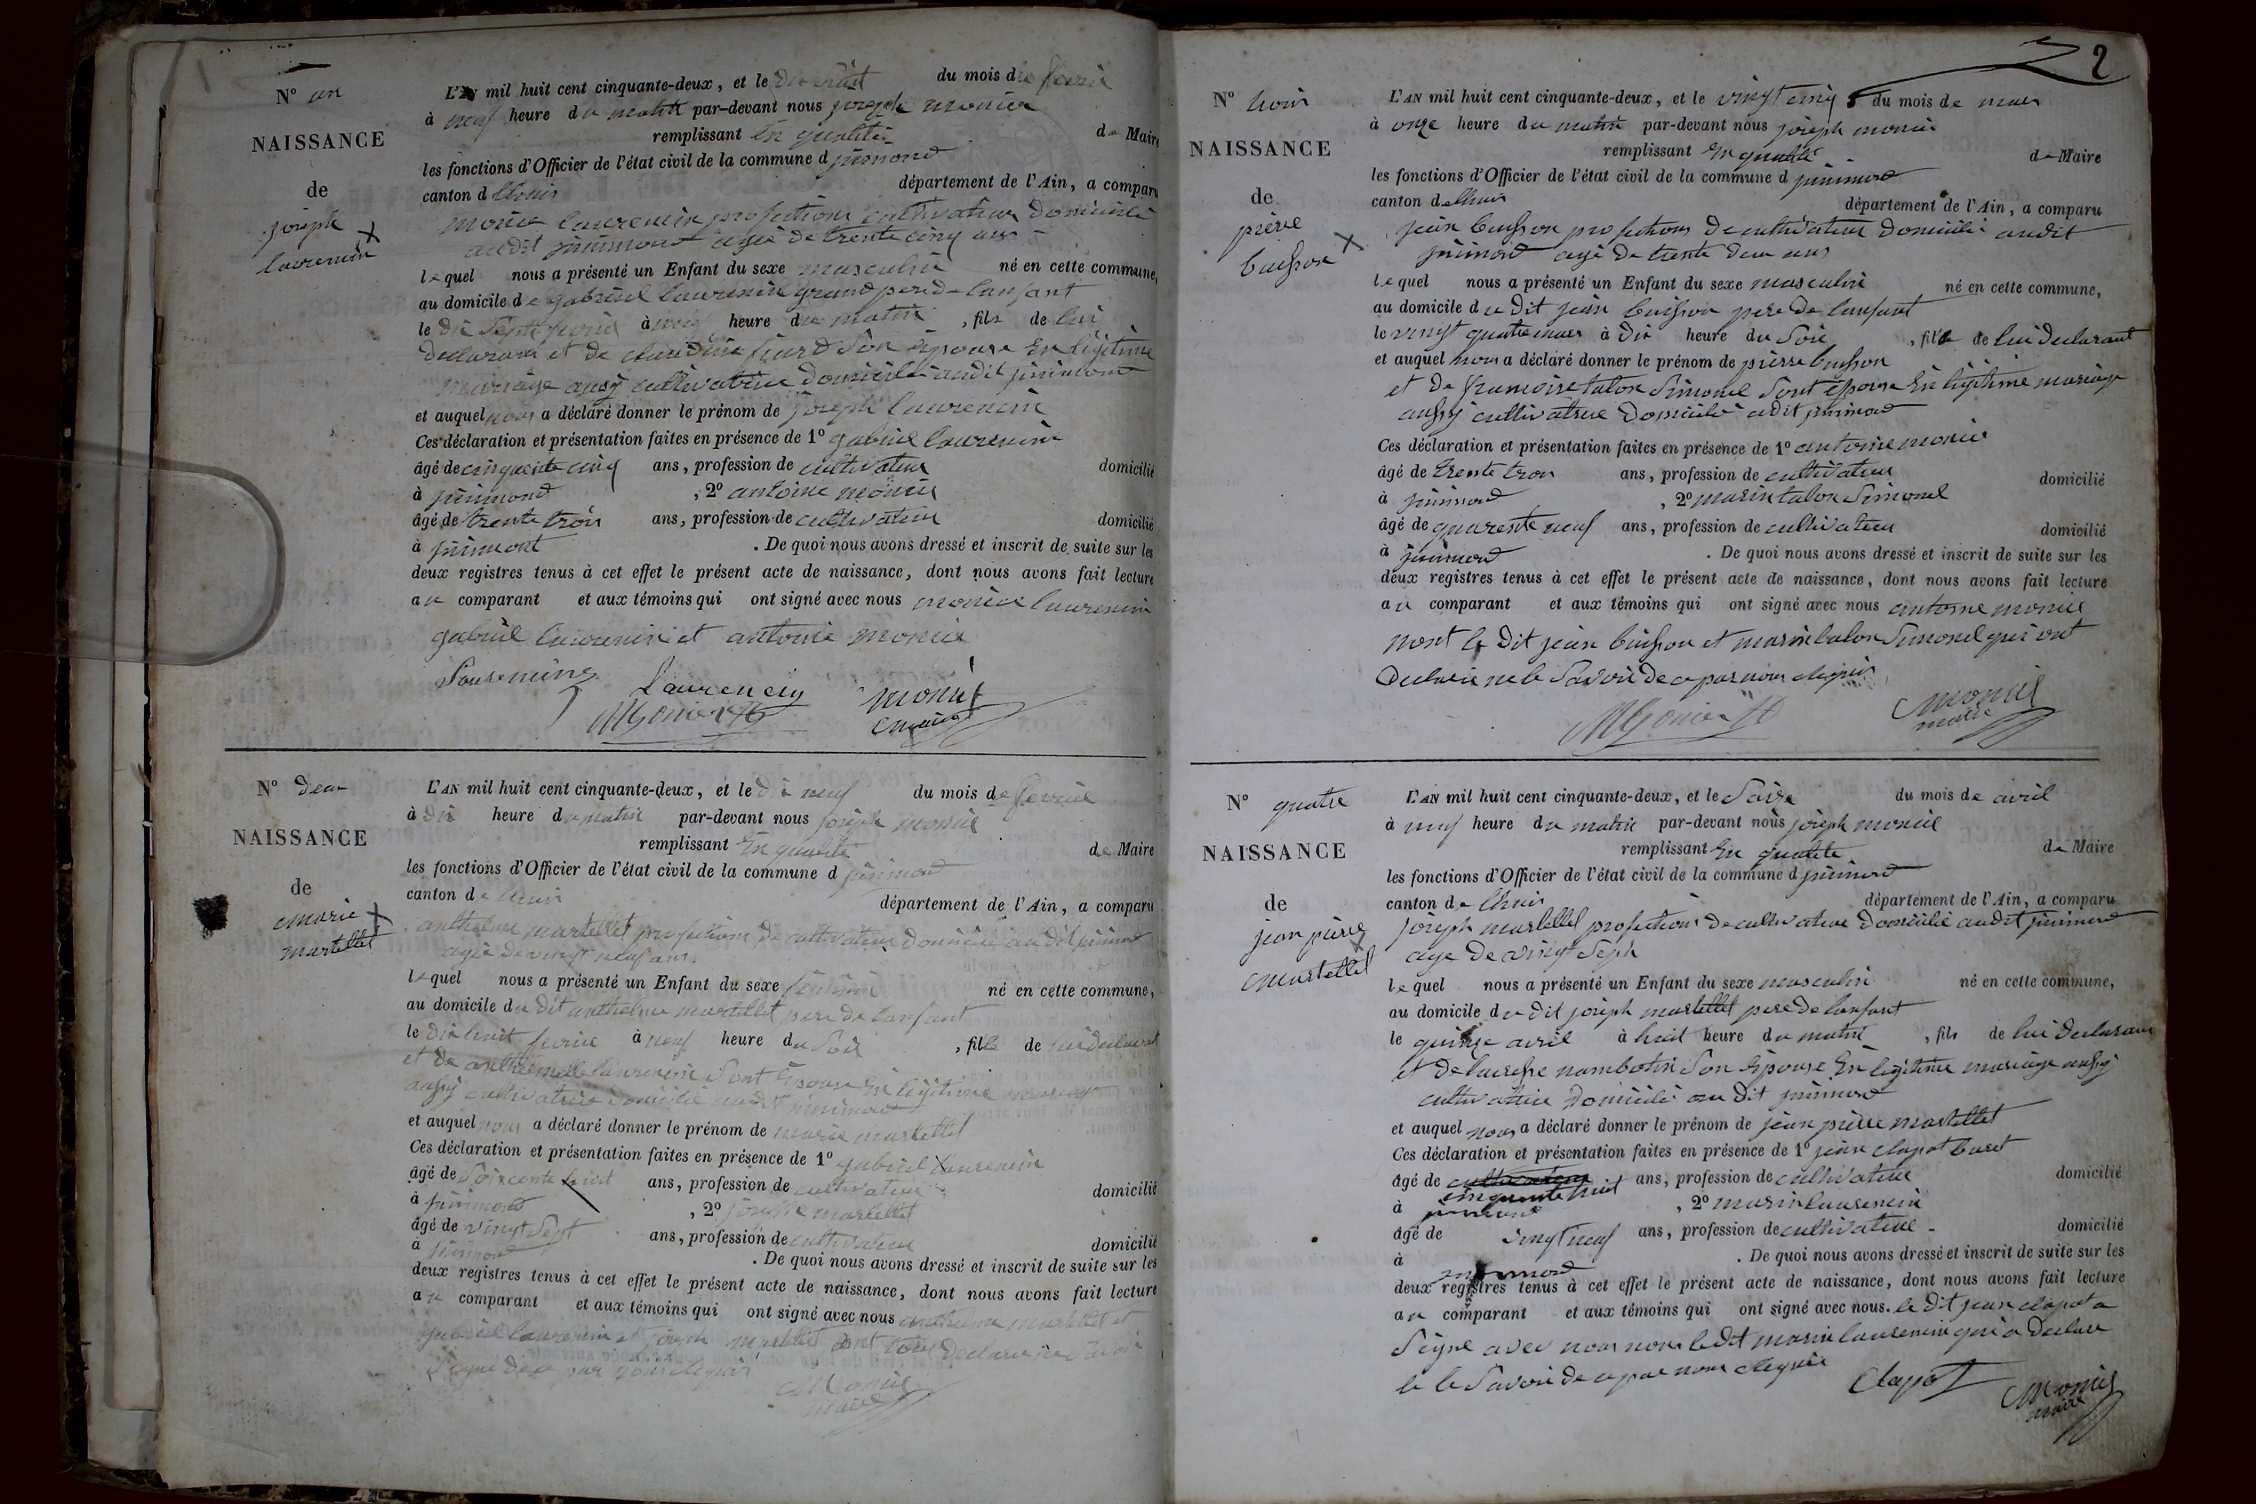 N° un
NAISSANCE
de
joseph
laurencin
L'AN mil huit cent cinquante-deux, et le dix huit du mois de fevrie
à neuf heure du matin par-devant nous joseph monier
remplissant En qualité de Maire
les fonctions d'Officier de l'état civil de la commune d
canton d lhuis département de l'Ain, a comparu
laurencin profections cultivateur domicilié
audit agé de trente cinq ans
lequel nous a présenté un Enfant du sexe masculin né en cette commune,
au domicile de gabriel laurencin grand pere de lanfant
le dix Sept fevrie à heure du matin, fils de lui
declarant et de claudine Son épouse En légitime
mariage ausy cultivatrice domicilié audit
et auquel nous a déclaré donner le prénom de joseph laurencin
Ces déclaration et présentation faites en présence de 1° gabriel laurencin
âgé de cinquante cinq ans, profession de cultivateur domicilié
à , 2° antoine monier
âgé de trente trois ans, profession de cultivateur domicilié
à . De quoi nous avons dressé et inscrit de suite sur les
deux registres tenus à cet effet le présent acte de naissance, dont nous avons fait lecture
au comparant et aux témoins qui ont signé avec nous laurencin
gabriel laurencin et antoine monier
Laurencin
Monier
monier
maire
N° deux
NAISSANCE
de
marie
martellet
L'AN mil huit cent cinquante-deux, et le dix neuf du mois de fevrier
à dix heure du matin par-devant nous joseph monier
remplissant En qualité de Maire
les fonctions d'Officier de l'état civil de la commune d
canton de lhuis département de l'Ain, a comparu
anthelme martellet profections de cultivateur domicilié au dit
agé de vingt neuf ans
lequel nous a présenté un Enfant du sexe né en cette commune,
au domicile du dit anthelme martellet pere de lanfant
le dix huit fevrie à neuf heure du Soir, fille de lui declarant
et de laurencin Sont Epouse En légitime mariage
ausy cultivatrice domicilié audit
et auquel nous a déclaré donner le prénom de marie martellet
Ces déclaration et présentation faites en présence de 1° gabriel laurencin
âgé de ans, profession de cultivateur domicilié
à , 2° joseph martellet
âgé de vingt Sept ans, profession de cultivateur domicilié
à . De quoi nous avons dressé et inscrit de suite sur les
deux registres tenus à cet effet le présent acte de naissance, dont nous avons fait lecture
au comparant et aux témoins qui ont signé avec nous anthelme martellet et
gabriel laurencin et joseph martellet ont tous declare
Signe de ce par nous
Monier
maire
2
N° trois
NAISSANCE
de
pierre
buisson
L'AN mil huit cent cinquante-deux, et le vingt cinq du mois de mars
à onze heure du matin par-devant nous joseph monier
remplissant En qualité de Maire
les fonctions d'Officier de l'état civil de la commune d
canton de lhuis département de l'Ain, a comparu
jean buisson profections de cultivateur domicilié audit
agé de trente deux ans
lequel nous a présenté un Enfant du sexe masculin né en cette commune,
au domicile du dit jean buisson pere de lanfant
le vingt quatre mars à dix heure du Soir, fils de lui declarant
et auquel nous a déclaré donner le prénom de pierre buisson
et de talon Simonel Sont épouse En légitime mariage
aussy cultivatrice domicilié audit
Ces déclaration et présentation faites en présence de 1° antoine monier
âgé de trente trois ans, profession de cultivateur domicilié
à , 2° marin talon Simonel
âgé de quarente neuf ans, profession de cultivateur domicilié
à . De quoi nous avons dressé et inscrit de suite sur les
deux registres tenus à cet effet le présent acte de naissance, dont nous avons fait lecture
au comparant et aux témoins qui ont signé avec nous antoine monier
nont le dit jean buisson et marin talon Simonel qui ont
declaré ne le Savoir de ce par nous
Monier
Monier
maire
N° quatre
NAISSANCE
de
jean pierre
martellet
L'AN mil huit cent cinquante-deux, et le du mois de avril
à neuf heure du matin par-devant nous joseph monier
remplissant En qualité de Maire
les fonctions d'Officier de l'état civil de la commune d
canton de lhuis département de l'Ain, a comparu
joseph martellet profections de cultivateur domicilié audit
age de vingt Sept
lequel nous a présenté un Enfant du sexe masculin né en cette commune,
au domicile du dit joseph martellet pere de lanfant
le quinze avril à huit heure du matin, fils de lui declarant
et de Son épouse En legitime mariage aussy
cultivatrice domicilié au dit
et auquel nous a déclaré donner le prénom de jean pierre martellet
Ces déclaration et présentation faites en présence de 1° jean clapot
âgé de cinquante huit ans, profession de cultivateur domicilié
à , 2° marin laurencin
âgé de vingt neuf ans, profession de cultivateur domicilié
à . De quoi nous avons dressé et inscrit de suite sur les
deux registres tenus à cet effet le présent acte de naissance, dont nous avons fait lecture
au comparant et aux témoins qui ont signé avec nous. le dit jean clapot a
Signe avec nous non le dit marin laurencin qui a declare
le Savoir de ce par nous
Clapot
Monier
maire